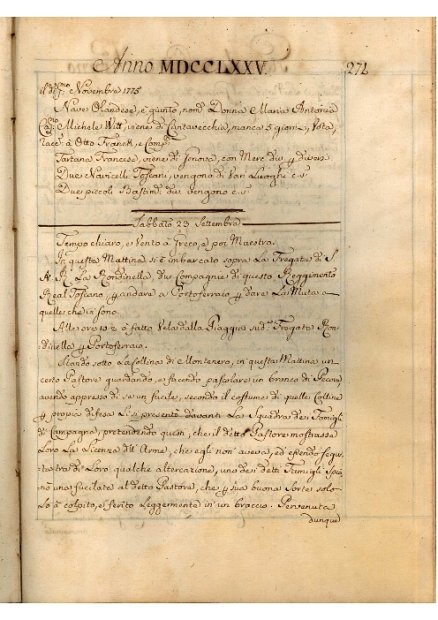 Anno MDCCLXXV. 271
Novembre 1775
Nave Olandese, è giunto, nom.ª Donna Maria Antonia
Cap.no Michele Witt, viene di Cartavecchia, manca 5 giorni, Vota,
racc.ª à Otto Franck, e Comp.
Tartana Francese, viene di Genova, con Merc. div. p. diversi
Due Navicelli Toscani, vengono di Van Luoghi c. s.
Due piccoli Bastim.ti div. vengono c. s.
Sabbato 23 Settembre
Tempo chiaro, e Vento à Greco, e poi Maestro.
In questa Mattina si è imbarcato sopra La Fregata di S.
A. R. La Rondinella due Compagnie di questo Reggimento
Real Toscano p. andare a Portoferraio p. dare La Muta a
quelle che vi sono.
Alle ore 10 ½ à fatto Vela dalla Piaggia sud.ª Fregata Ron-
dinella p. Portoferraio.
Stando sotto La Collina di Montenero, in questa Mattina un
certo Pastore guardando, e facendo pascolare un branco di Pecore,
avendo appresso di se un fucile, secondo il costume di quelle Colline
p. propria difesa Li si presentò davanti La Squadra dei Famigli
di Campagna, pretendendo questi, che il detto Pastore mostrasse
Loro La Licenza dell' Arme, che egli non aveva, ed essendo segui-
ta tra di Loro qualche altercazione, uno dei detti Famigli spa-
rò una fucilata al detto Pastore, che p. sua buona Sorte solo
Lo à colpito, e ferito Leggermente in un braccio. Pervenuta
dunque